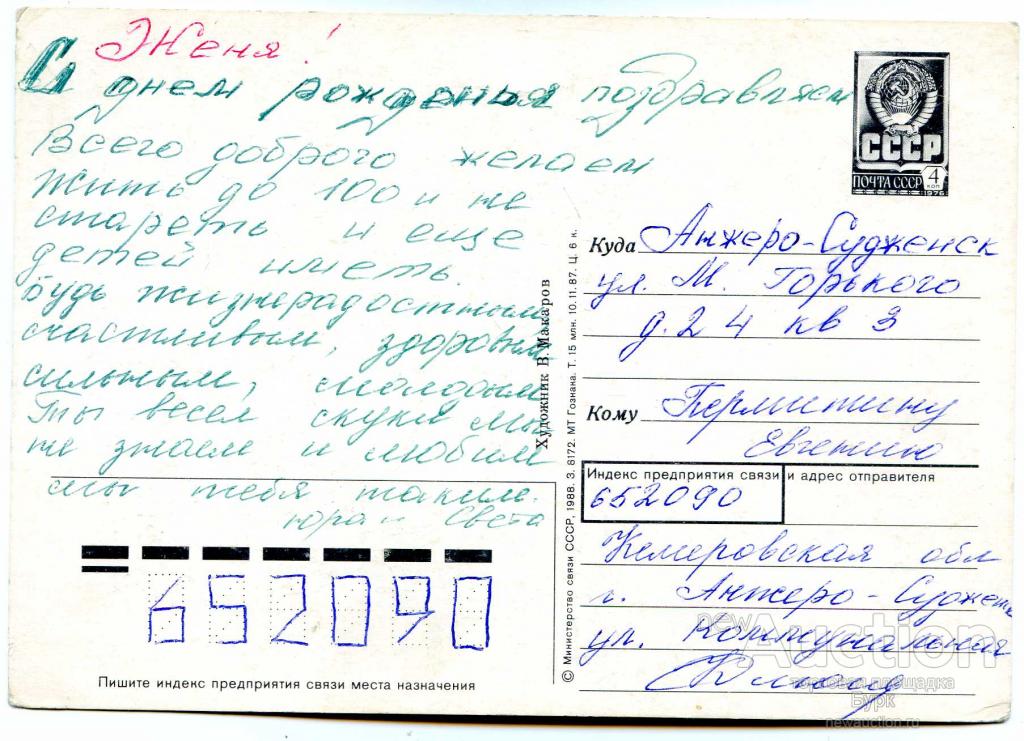 Женя!
С днем рожденья поздравляем
Всего доброго желаем
Жить до 100 и не
стареть и еще
детей иметь.
Будь жизнерадостным
счастливым, здоровым
сильным, молодым
Ты весел скуки мы
не знаем и любим
мы тебя таким.
Юра и Света
652090
Пишите индекс предприятия связи места назначения
Художник В. Макаров
© Министерство связи СССР, 1988. З. 8172. МТ Гознака. Т. 15 млн. 10.11.87. Ц. 6 к.
СССР
ПОЧТА СССР 4 КОП
1976
Куда Анжеро-Судженск
ул. М. Горького
д. 24 кв 3
Кому
Евгению
Индекс предприятия связи и адрес отправителя
652090
Кемеровская обл
г. Анжеро-Суджен
ул. Коммунальная
newAuction
торговая площадка
Бурк
newauction.ru